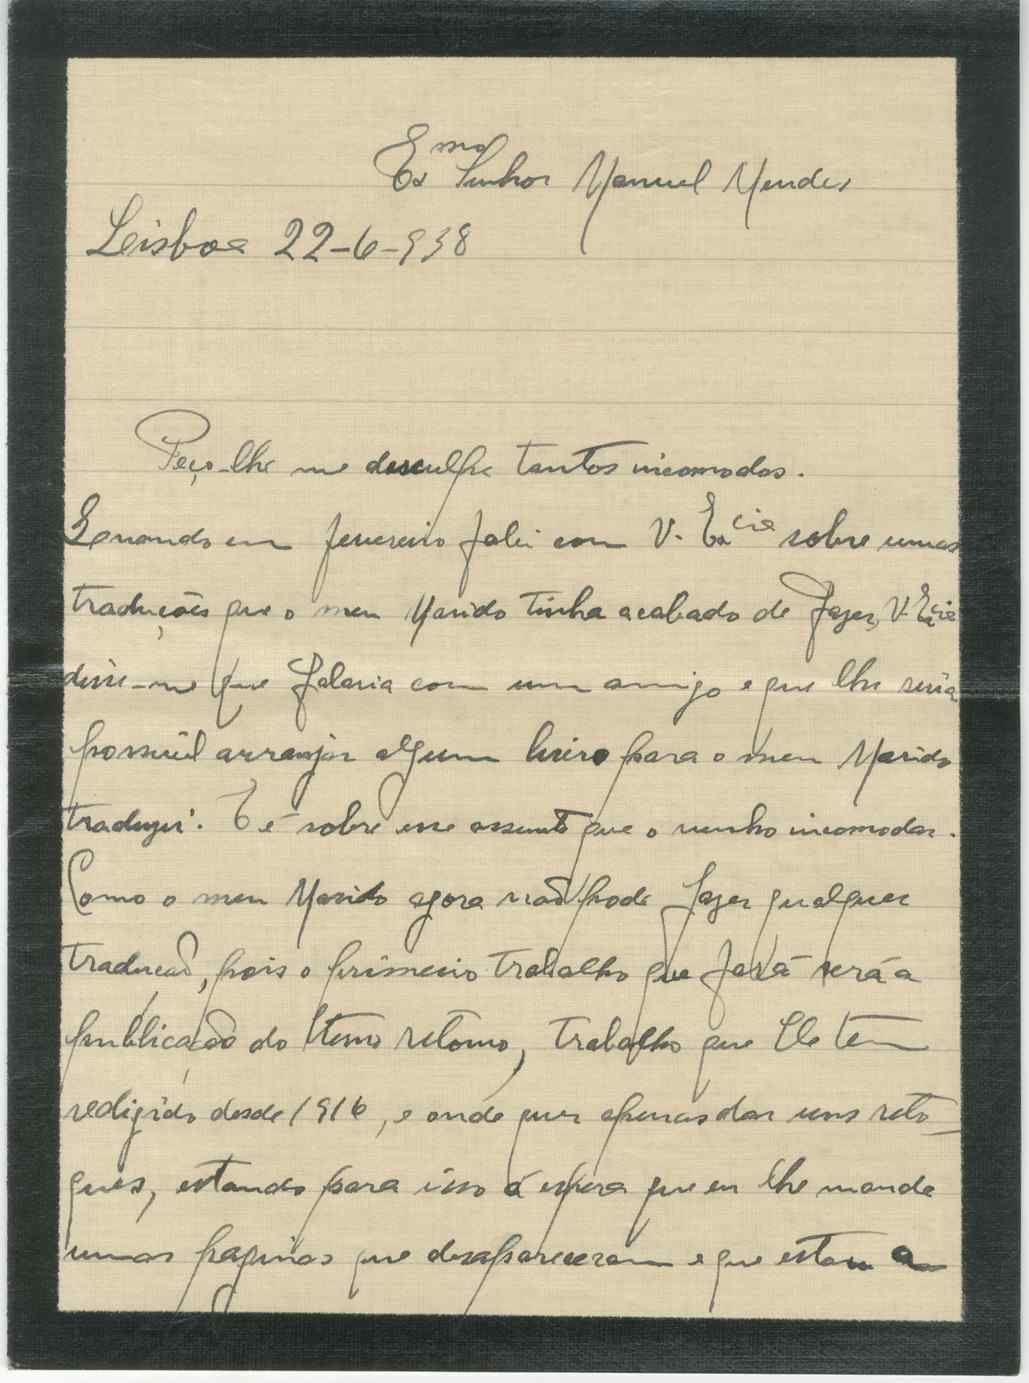 Exmo Senhor Manuel Mendes
Lisboa 22-6-938
Peço-lhe me desculpe tantos incomodos.
Quando em fevereiro falei com V. Excia sobre umas
traduções que o meu Marido tinha acabado de fazer, V. Excia
disse-me que falaria com um amigo e que lhe seria
possivel arranjar algum livro para o meu Marido
traduzir. E é sobre esse assunto que o venho incomodar.
Como o meu Marido agora não pode fazer qualquer
tradução, pois o primeiro trabalho que fará será a
publicação do Eterno retorno, trabalho que Ele tem
redigido desde 1916, e onde quer apenas dar uns reto-
ques, estando para isso á espera que eu lhe mande
umas paginas que desapareceram e que estam a